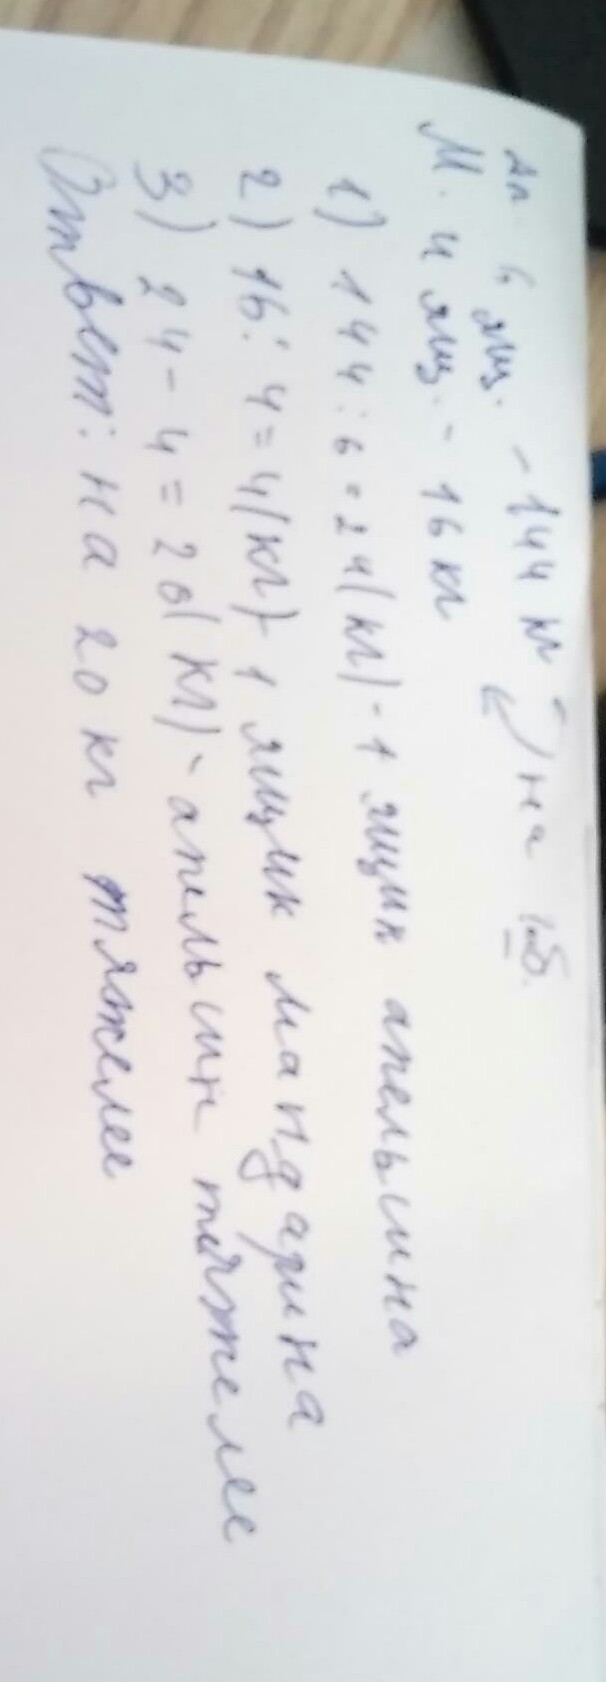 Ап. 6 ящ. - 144 кг
на ? б.
М. 4 ящ. - 16 кг
1) 144 : 6 = 24 (кг) - 1 ящик апельсина
2) 16 : 4 = 4 (кг) - 1 ящик мандарина
3) 24 - 4 = 20 (кг) - апельсин тяжелее
Ответ: на 20 кг тяжелее